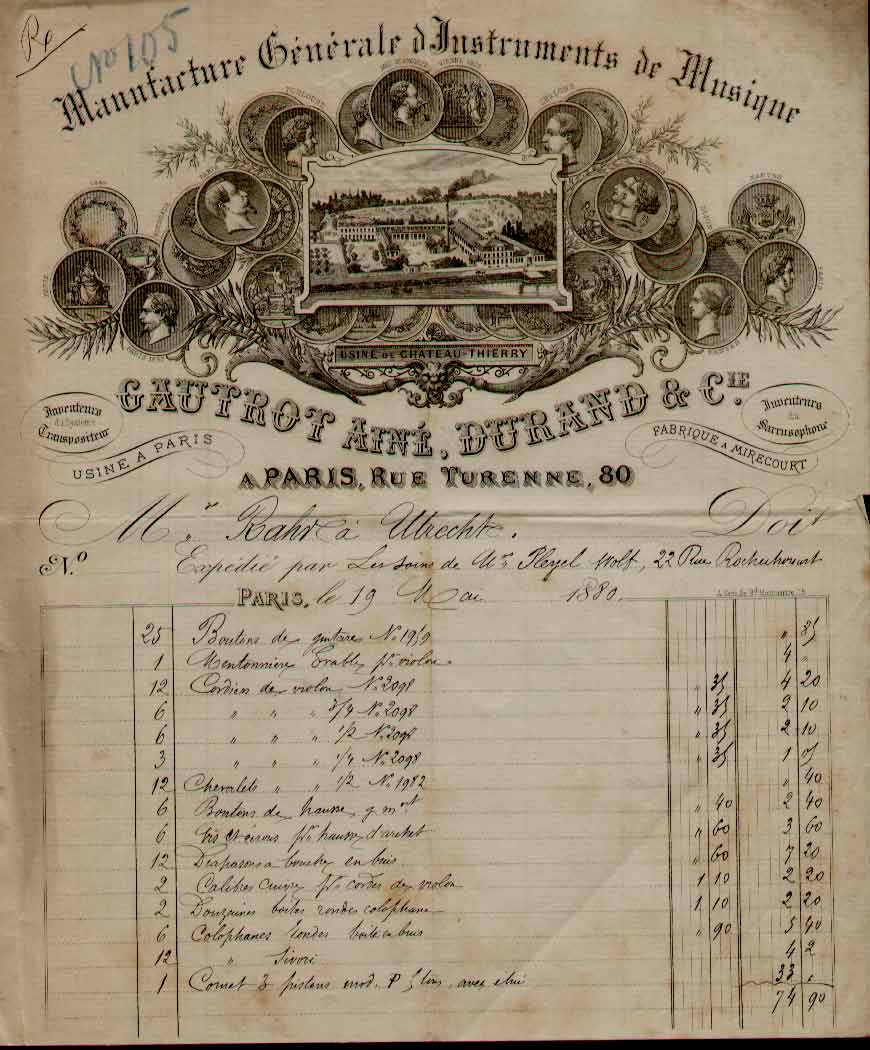 Rp
No 105
Manufacture Générale d'Instruments de Musique
TOULOUSE
USINE DE CHATEAU-THIERRY
GAUTROT AINÉ, DURAND & CIE.
Inventeurs du Système Transpositeur
Inventeurs du Sarrusophone
USINE A PARIS
FABRIQUE A MIRECOURT
A PARIS, RUE TURENNE, 80
Mr. Rahr à Utrecht. Doit
No. Expédié par les soins de Mrs Pleyel Wolf, 22 Rue Rochechouart
PARIS, le 19 Mai 1880.
25 Boutons de guitares No 1959 " 85
1 Mentonnière Erable pr violon. 4 "
12 Cordiers de violon No 2098 " 35 4 20
6 " " " 3/4 No 2098 " 35 2 10
6 " " " 1/2 No 2098 " 35 2 10
3 " " " 1/4 No 2098 " 35 1 05
12 Chevalets " " 1/2 No 1982 " 40
6 Boutons de hausse " 40 2 40
6 Vis et écrous pr hausse d'archet " 60 3 60
12 Diapasons a bouche en buis " 60 7 20
2 Calibres cuivre pr cordes de violon 1 10 2 20
2 Douzaines boites rondes colophane 1 10 2 20
6 Colophanes rondes boite en buis " 90 5 40
12 " Sivori 4 2
1 Cornet 3 pistons avec étui 33 "
74 90